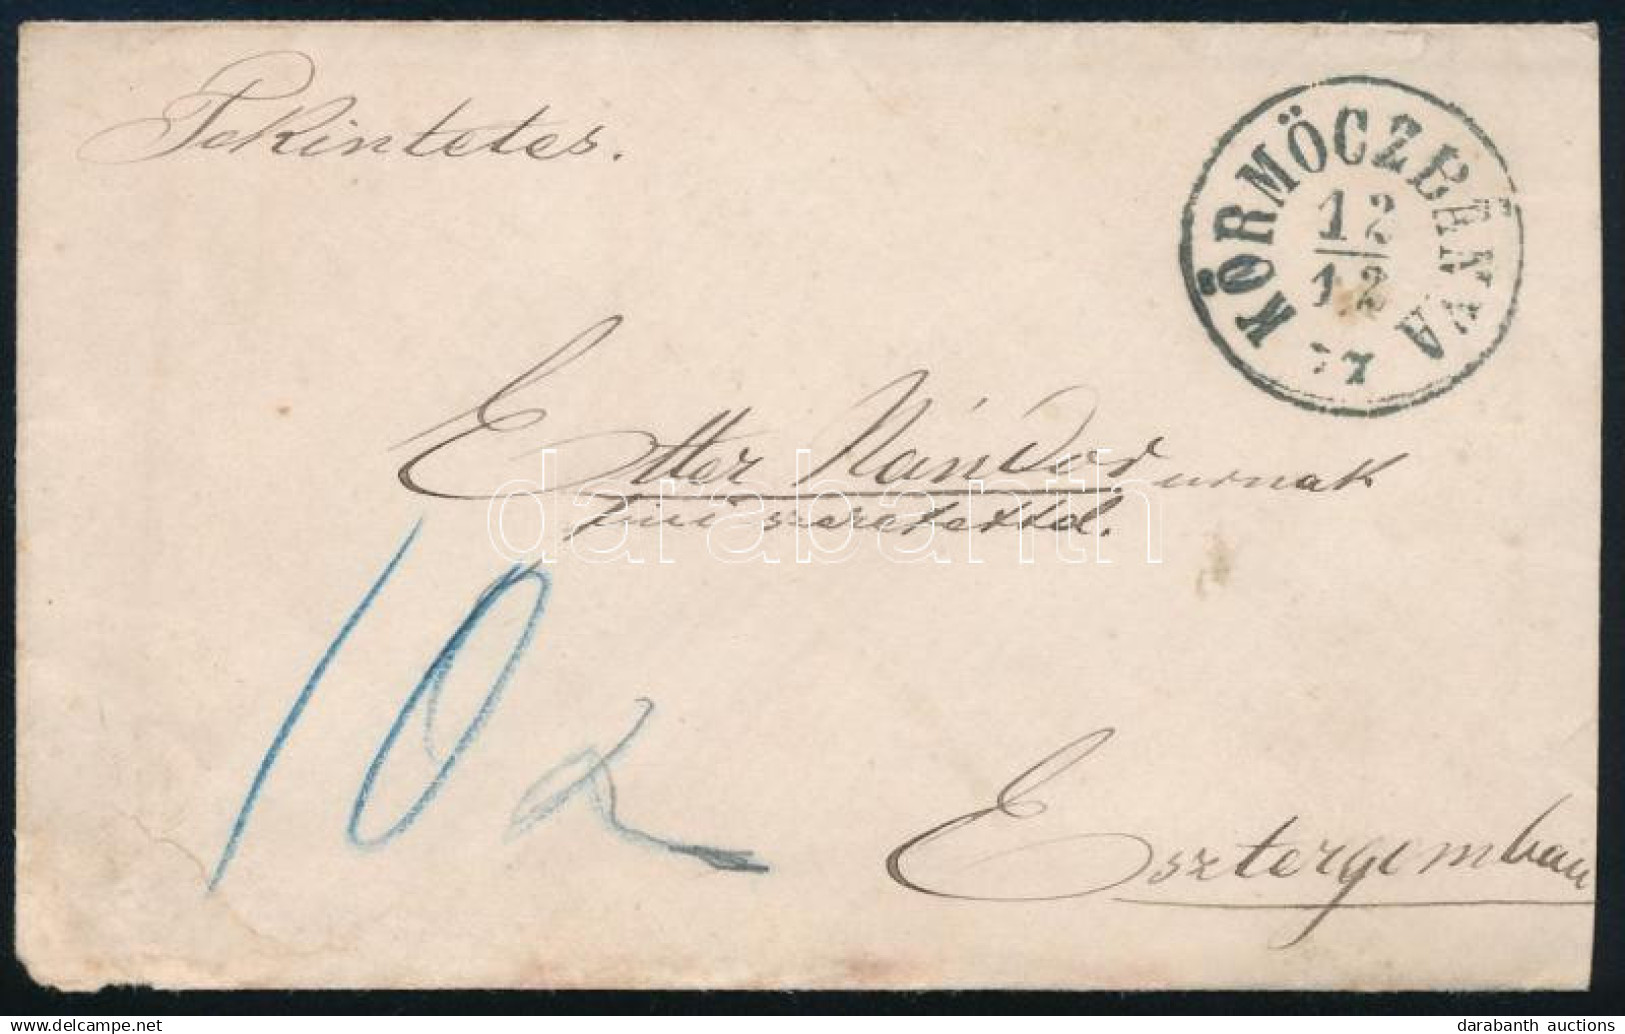 Tekintetes.
KÖRMÖCZBÁNYA
12
12
77
Etter Nándor urnak
fiúi szeretettel.
darabanth
10
Esztergomban
darabanth auctions